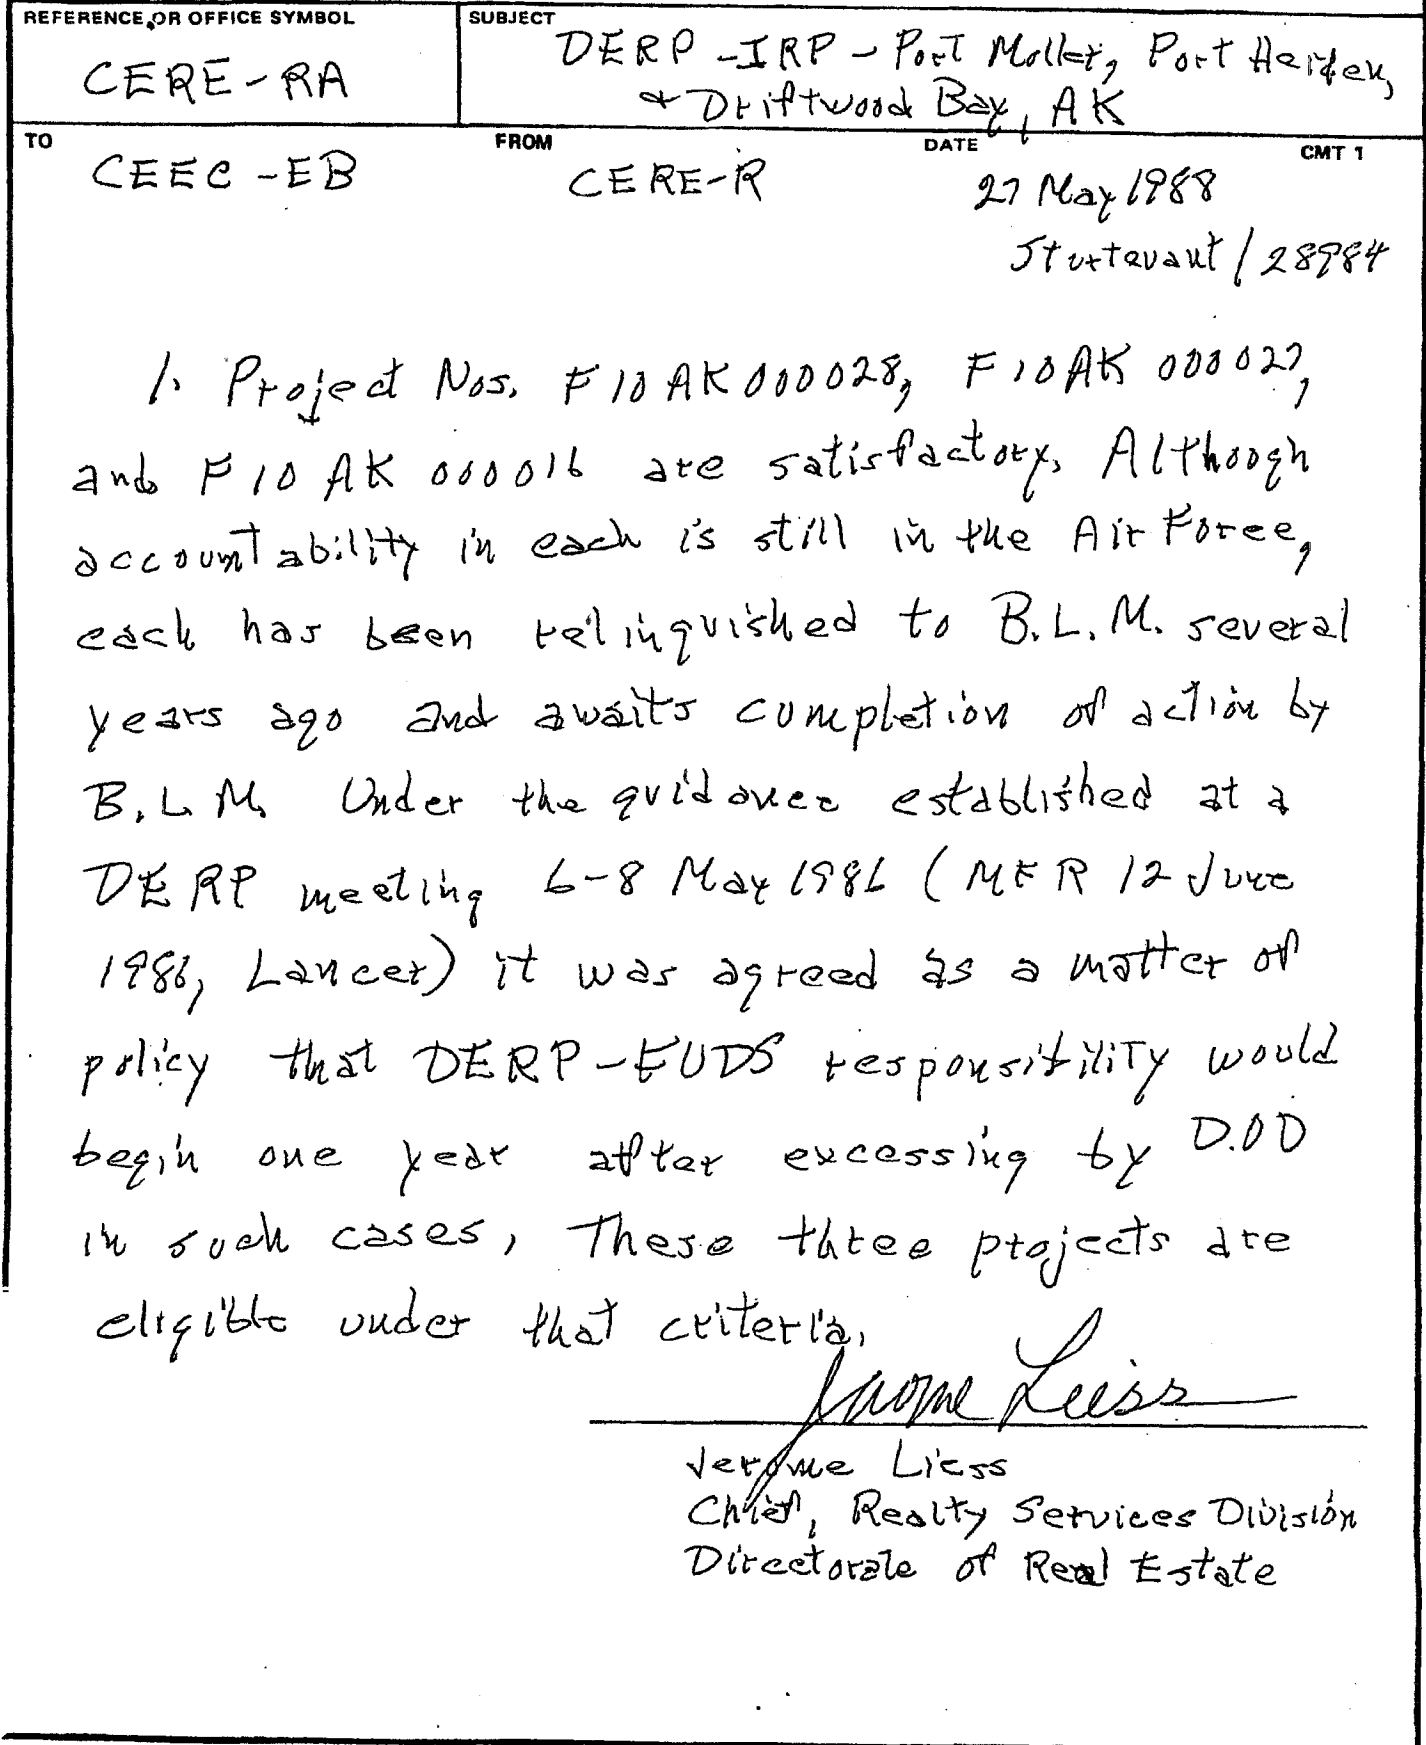 REFERENCE OR OFFICE SYMBOL
CERE-RA
SUBJECT
DERP-IRP-Port Moller, Port Heiden,
& Driftwood Bay, AK
TO
CEEC-EB
FROM
CERE-R
DATE
27 May 1988
CMT 1
Sturtevant/28984
1. Project Nos. F10AK000028, F10AK000027,
and F10AK000016 are satisfactory. Although
accountability in each is still in the Air Force,
each has been relinquished to B.L.M. several
years ago and awaits completion of action by
B.L.M. Under the guidance established at a
DERP meeting 6-8 May 1986 (MFR 12 June
1986, Lancer) it was agreed as a matter of
policy that DERP-FUDS responsibility would
begin one year after excessing by D.O D
in such cases, These three projects are
eligible under that criteria.
Jerome Liess
Jerome Liess
Chief, Realty Services Division
Directorate of Real Estate